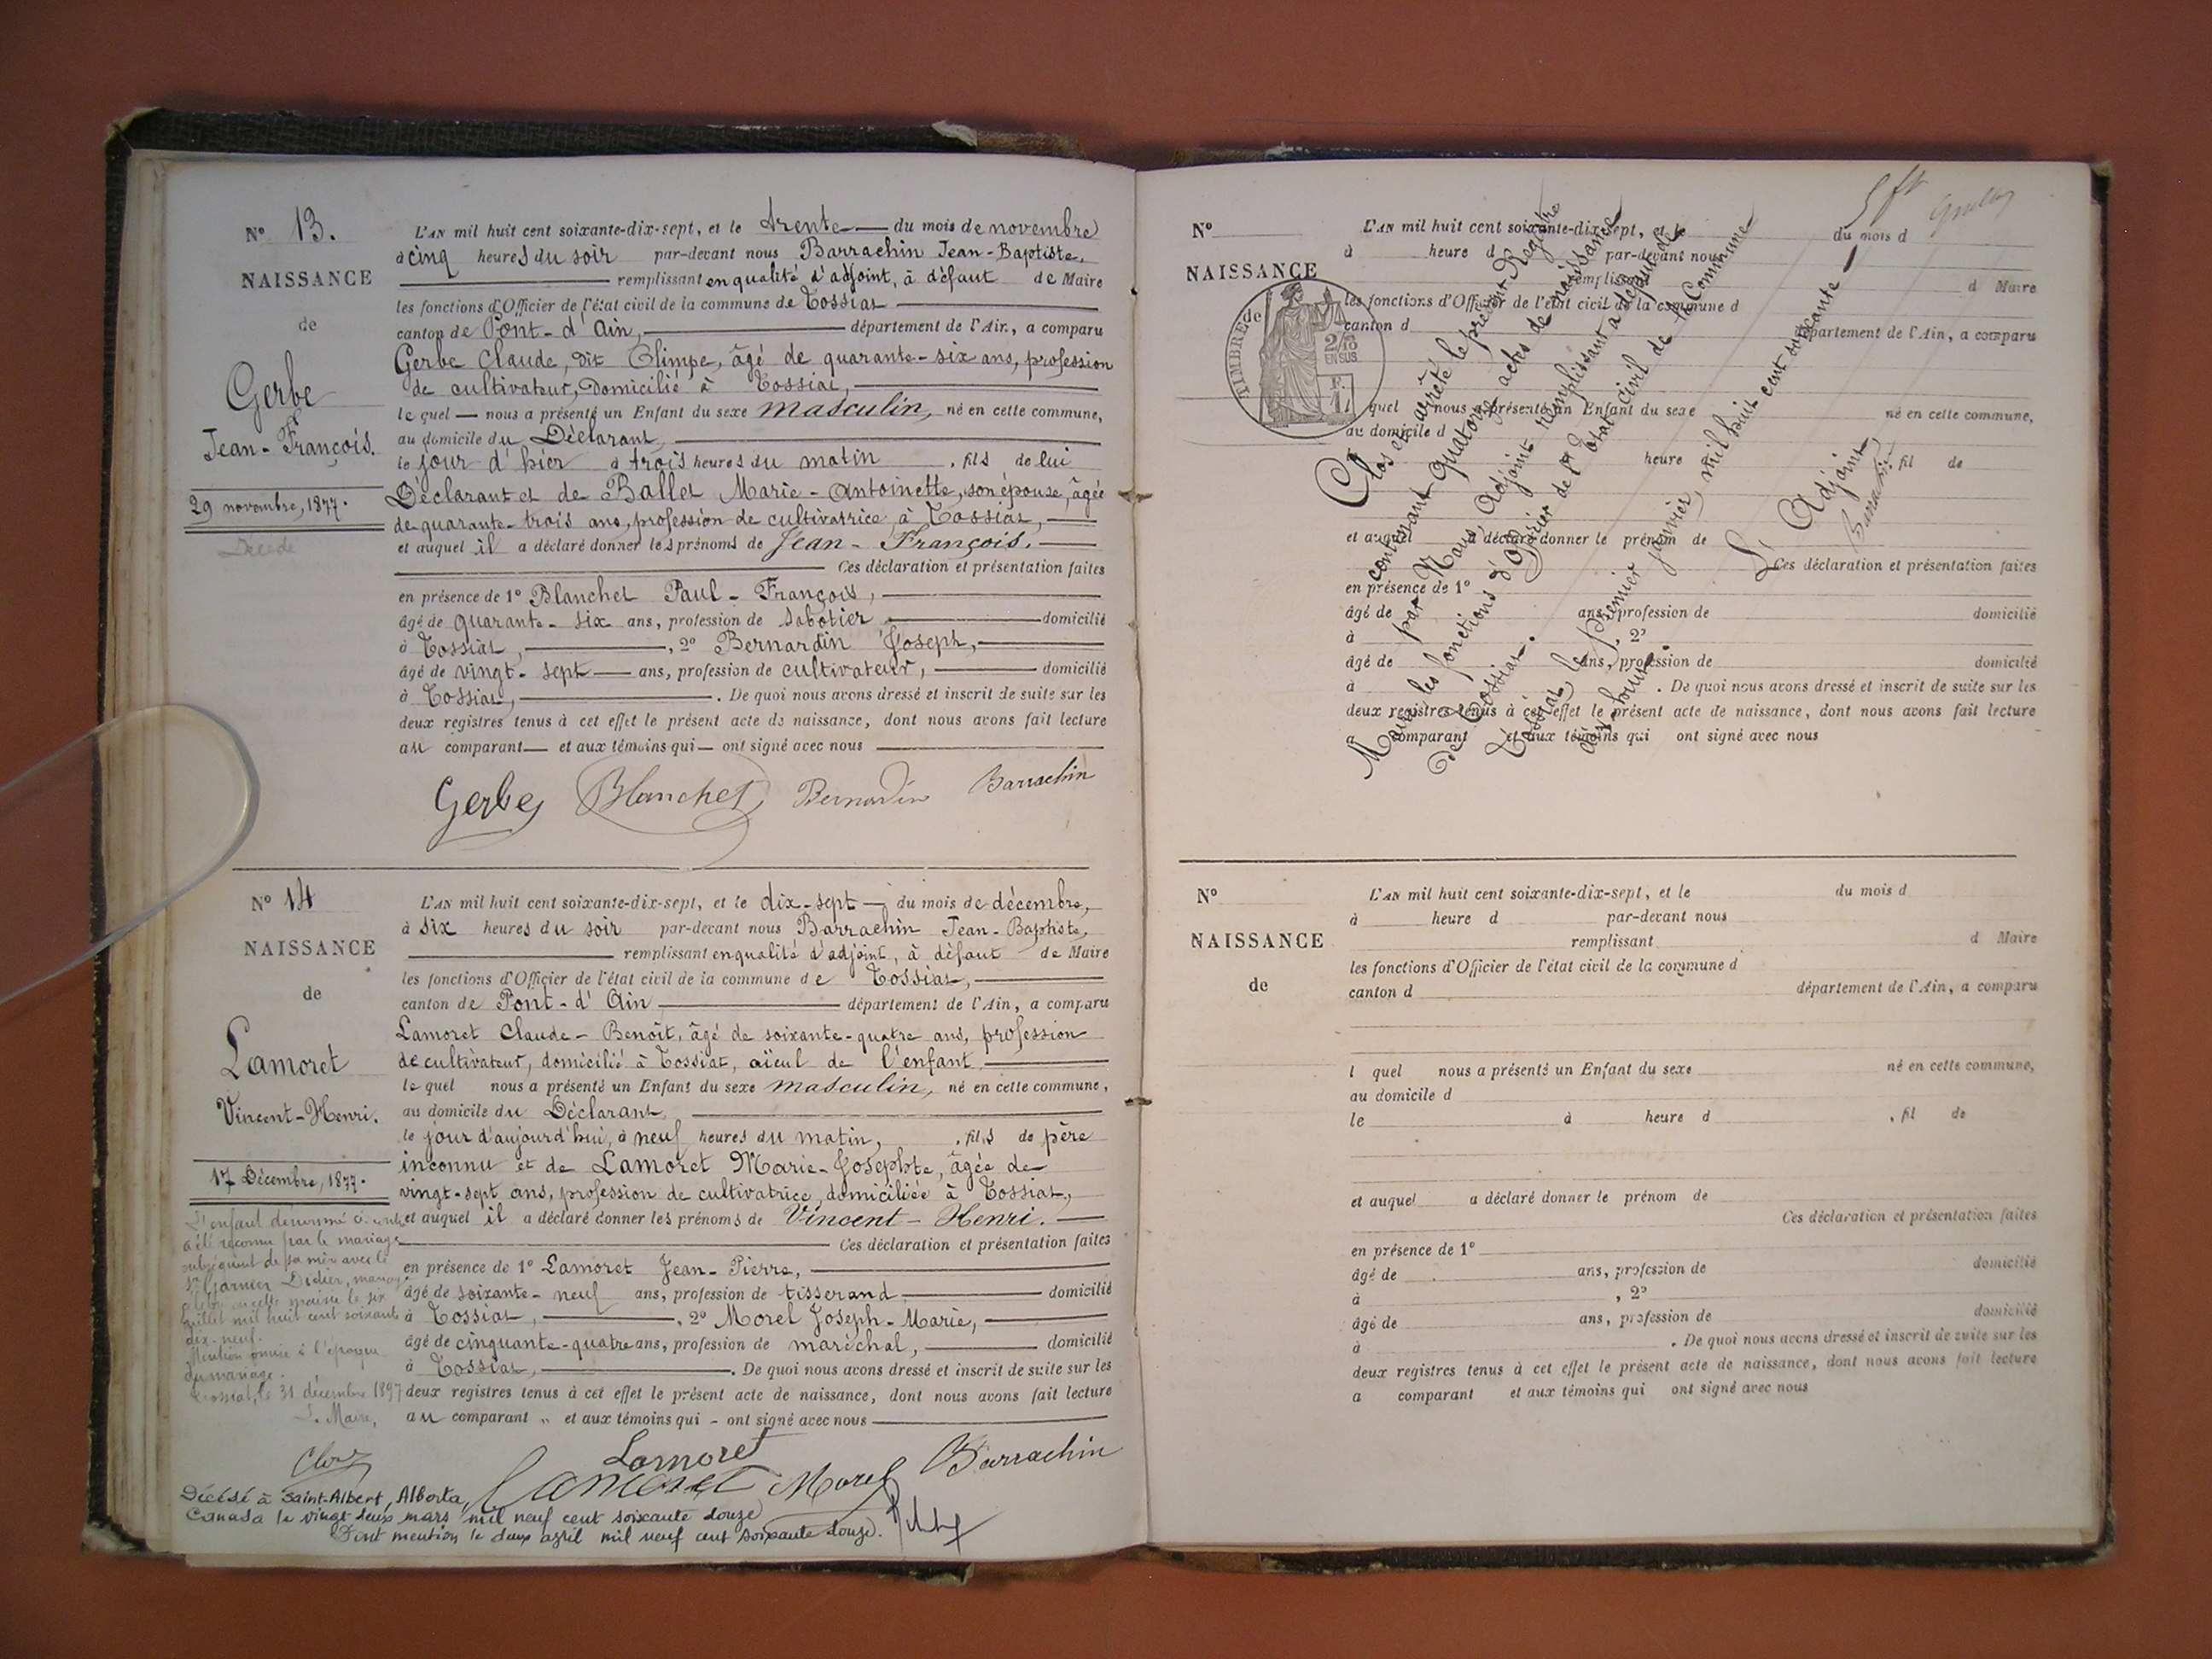 N° 13.
NAISSANCE
de
Gerbe
Jean-François.
29 novembre, 1877.
Décédé
L'AN mil huit cent soixante-dix-sept, et le trente du mois de novembre
à cinq heures du soir par-devant nous Barrachin Jean-Baptiste,
remplissant en qualité d'adjoint, à défaut de Maire
les fonctions d'Officier de l'état civil de la commune de Tossiat
canton de Pont-d'Ain, département de l'Ain, a comparu
Gerbe Claude, dit Olimpe, âgé de quarante-six ans, profession
de cultivateur, domicilié à Tossiat,
le quel nous a présenté un Enfant du sexe masculin, né en cette commune,
au domicile du Déclarant,
le jour d'hier à trois heures du matin, fils de lui
Déclarant et de Ballet Marie-Antoinette, son épouse, âgée
de quarante-trois ans, profession de cultivatrice, à Tossiat,
et auquel il a déclaré donner les prénoms de Jean-François.
Ces déclaration et présentation faites
en présence de 1° Blanchet Paul-François,
âgé de quarante-six ans, profession de sabotier domicilié
à Tossiat, 2° Bernardin Joseph,
âgé de vingt-sept ans, profession de cultivateur, domicilié
à Tossiat, . De quoi nous avons dressé et inscrit de suite sur les
deux registres tenus à cet effet le présent acte de naissance, dont nous avons fait lecture
au comparant et aux témoins qui ont signé avec nous
Gerbe Blanchet Bernardin Barrachin
N° 14
NAISSANCE
de
Lamoret
Vincent-Henri.
17 Décembre, 1877.
L'enfant dénommé ci-contre
a été reconnu par le mariage
subséquent de sa mère avec le
Sr Garnier Didier, mariage
célébré en cette mairie le six
juillet mil huit cent soixante
dix-neuf.
Mention omise à l'époque
du mariage.
Tossiat, le 31 décembre 1897
Le Maire,
L'AN mil huit cent soixante-dix-sept, et le dix-sept du mois de décembre,
à six heures du soir par-devant nous Barrachin Jean-Baptiste,
remplissant en qualité d'adjoint, à défaut de Maire
les fonctions d'Officier de l'état civil de la commune de Tossiat,
canton de Pont-d'Ain département de l'Ain, a comparu
Lamoret Claude-Benoît, âgé de soixante-quatre ans, profession
de cultivateur, domicilié à Tossiat, aïeul de l'enfant
le quel nous a présenté un Enfant du sexe masculin, né en cette commune,
au domicile du Déclarant,
le jour d'aujourd'hui, à neuf heures du matin, , fils de père
inconnu et de Lamoret Marie-Josephte, âgée de
vingt-sept ans, profession de cultivatrice, domiciliée à Tossiat,
et auquel il a déclaré donner les prénoms de Vincent-Henri.
Ces déclaration et présentation faites
en présence de 1° Lamoret Jean-Pierre,
âgé de soixante-neuf ans, profession de tisserand domicilié
à Tossiat, , 2° Morel Joseph-Marie,
âgé de cinquante-quatre ans, profession de maréchal, domicilié
à Tossiat, . De quoi nous avons dressé et inscrit de suite sur les
deux registres tenus à cet effet le présent acte de naissance, dont nous avons fait lecture
au comparant „ et aux témoins qui - ont signé avec nous
Lamoret
Lamoret Morel Barrachin
Décédé à Saint-Albert, Alberta,
Canada le vingt deux mars mil neuf cent soixante douze
Dont mention le deux avril mil neuf cent soixante douze.
N°
NAISSANCE
de
TIMBRE
2/10
EN SUS
L'AN mil huit cent soixante-dix-sept, et le du mois d
à heure d par-devant nous
remplissant d Maire
les fonctions d'Officier de l'état civil de la commune d
canton d département de l'Ain, a comparu
l quel nous a présenté un Enfant du sexe né en cette commune,
au domicile d
heure , fil de
et auquel a déclaré donner le prénom de
Ces déclaration et présentation faites
en présence de 1°
âgé de ans, profession de domicilié
à , 2°
âgé de ans, profession de domicilié
à . De quoi nous avons dressé et inscrit de suite sur les
deux registres tenus à cet effet le présent acte de naissance, dont nous avons fait lecture
a comparant et aux témoins qui ont signé avec nous
Clos et arrêté le présent Registre
contenant quatorze actes de naissance
par Nous, Adjoint remplissant à défaut de
Maire les fonctions d'Officier de l'Etat civil de la Commune
de Tossiat.
Tossiat, le premier janvier, mil huit cent soixante
dix huit.
L'Adjoint,
Barrachin
N°
NAISSANCE
de
L'AN mil huit cent soixante-dix-sept, et le du mois d
à heure d par-devant nous
remplissant d Maire
les fonctions d'Officier de l'état civil de la commune d
canton d département de l'Ain, a comparu
l quel nous a présenté un Enfant du sexe né en cette commune,
au domicile d
le à heure d , fil de
et auquel a déclaré donner le prénom de
Ces déclaration et présentation faites
en présence de 1°
âgé de ans, profession de domicilié
à , 2°
âgé de ans, profession de domicilié
à . De quoi nous avons dressé et inscrit de suite sur les
deux registres tenus à cet effet le présent acte de naissance, dont nous avons fait lecture
a comparant et aux témoins qui ont signé avec nous